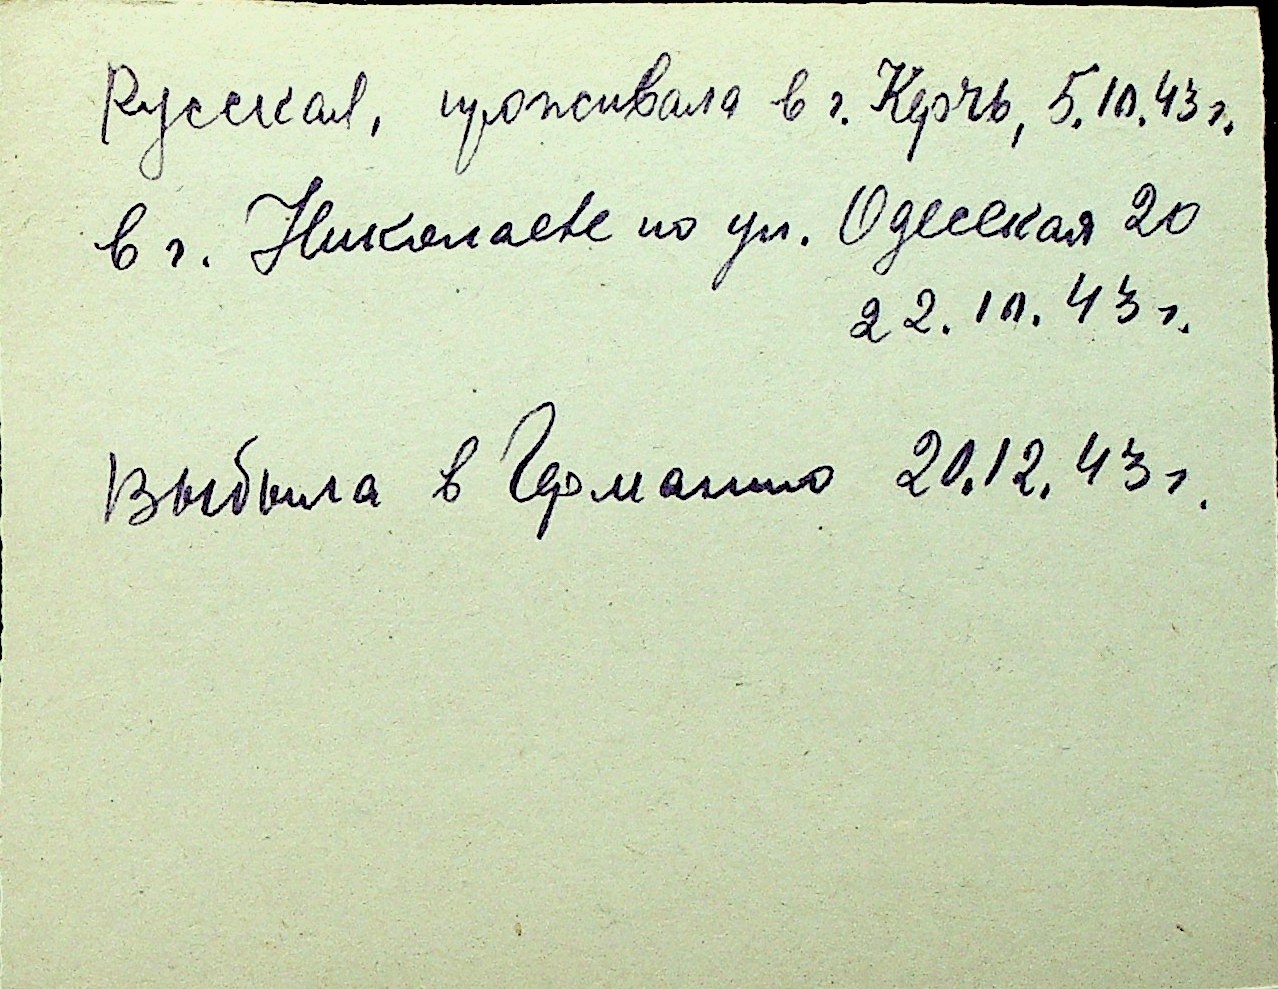 Русская, проживала в г. Керчь, 5.10.43 г.
в г. Николаеве по ул. Одесская 20
22.10.43 г.
Выбыла в Германию 20.12.43 г.